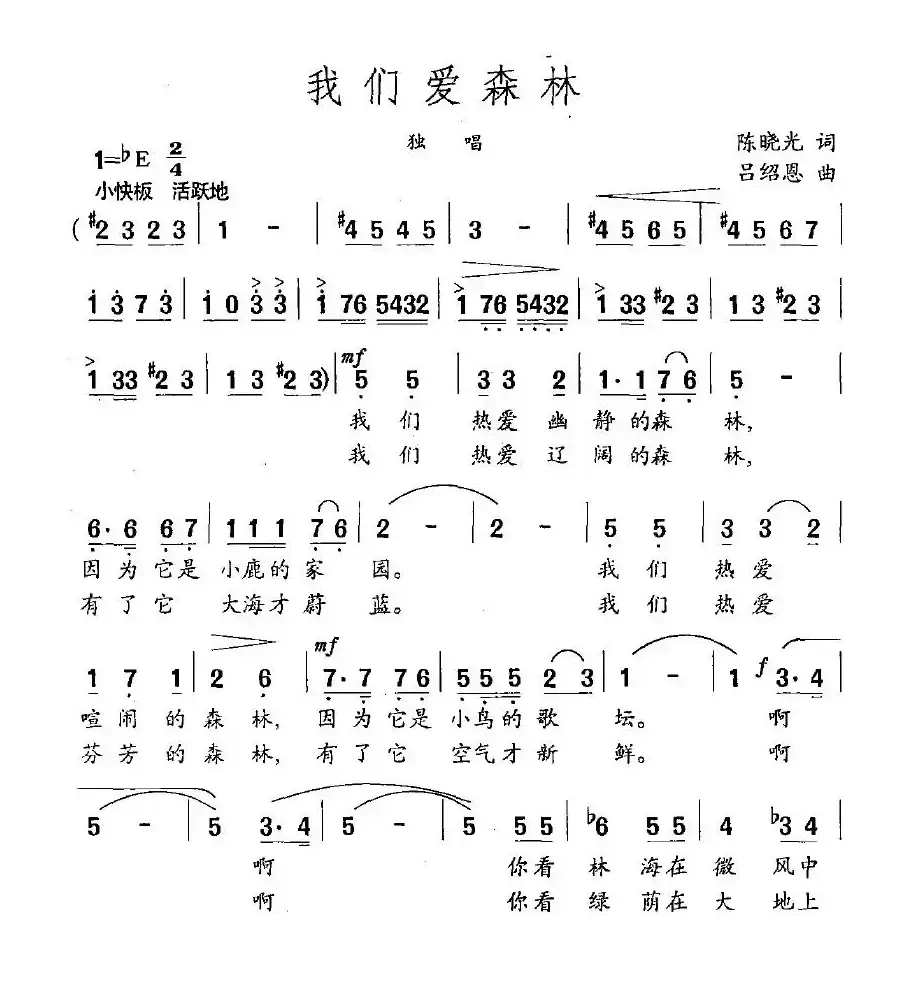 我们爱森林
独 唱
陈晓光 词
1=♭E 2/4
吕绍恩 曲
小快板 活跃地
( #2 3 2 3 | 1 - | #4 5 4 5 | 3 - | #4 5 6 5 | #4 5 6 7 |
1 3 7 3 | 1 0 3 3 | 1 76 5432 | 1 76 5432 | 1 33 #2 3 | 1 3 #2 3 |
mf
1 33 #2 3 | 1 3 #2 3) | 5 5 | 3 3 2 | 1· 1 7 6 | 5 - |
我 们 热爱 幽 静 的森 林,
我 们 热爱 辽 阔 的森 林,
6· 6 6 7 | 1 1 1 7 6 | 2 - | 2 - | 5 5 | 3 3 2 |
因 为 它是 小鹿的 家 园。 我 们 热 爱
有 了 它 大海才 蔚 蓝。 我 们 热 爱
mf
1 7 1 | 2 6 | 7· 7 7 6 | 5 5 5 2 3 | 1 - | 1 f 3· 4 |
喧 闹 的 森 林, 因 为 它是 小鸟的 歌 坛。 啊
芬 芳 的 森 林, 有 了 它 空气才 新 鲜。 啊
5 - | 5 3· 4 | 5 - | 5 5 5 | ♭6 5 5 | 4 ♭3 4 |
啊 你看 林 海在 微 风中
啊 你看 绿 荫在 大 地上